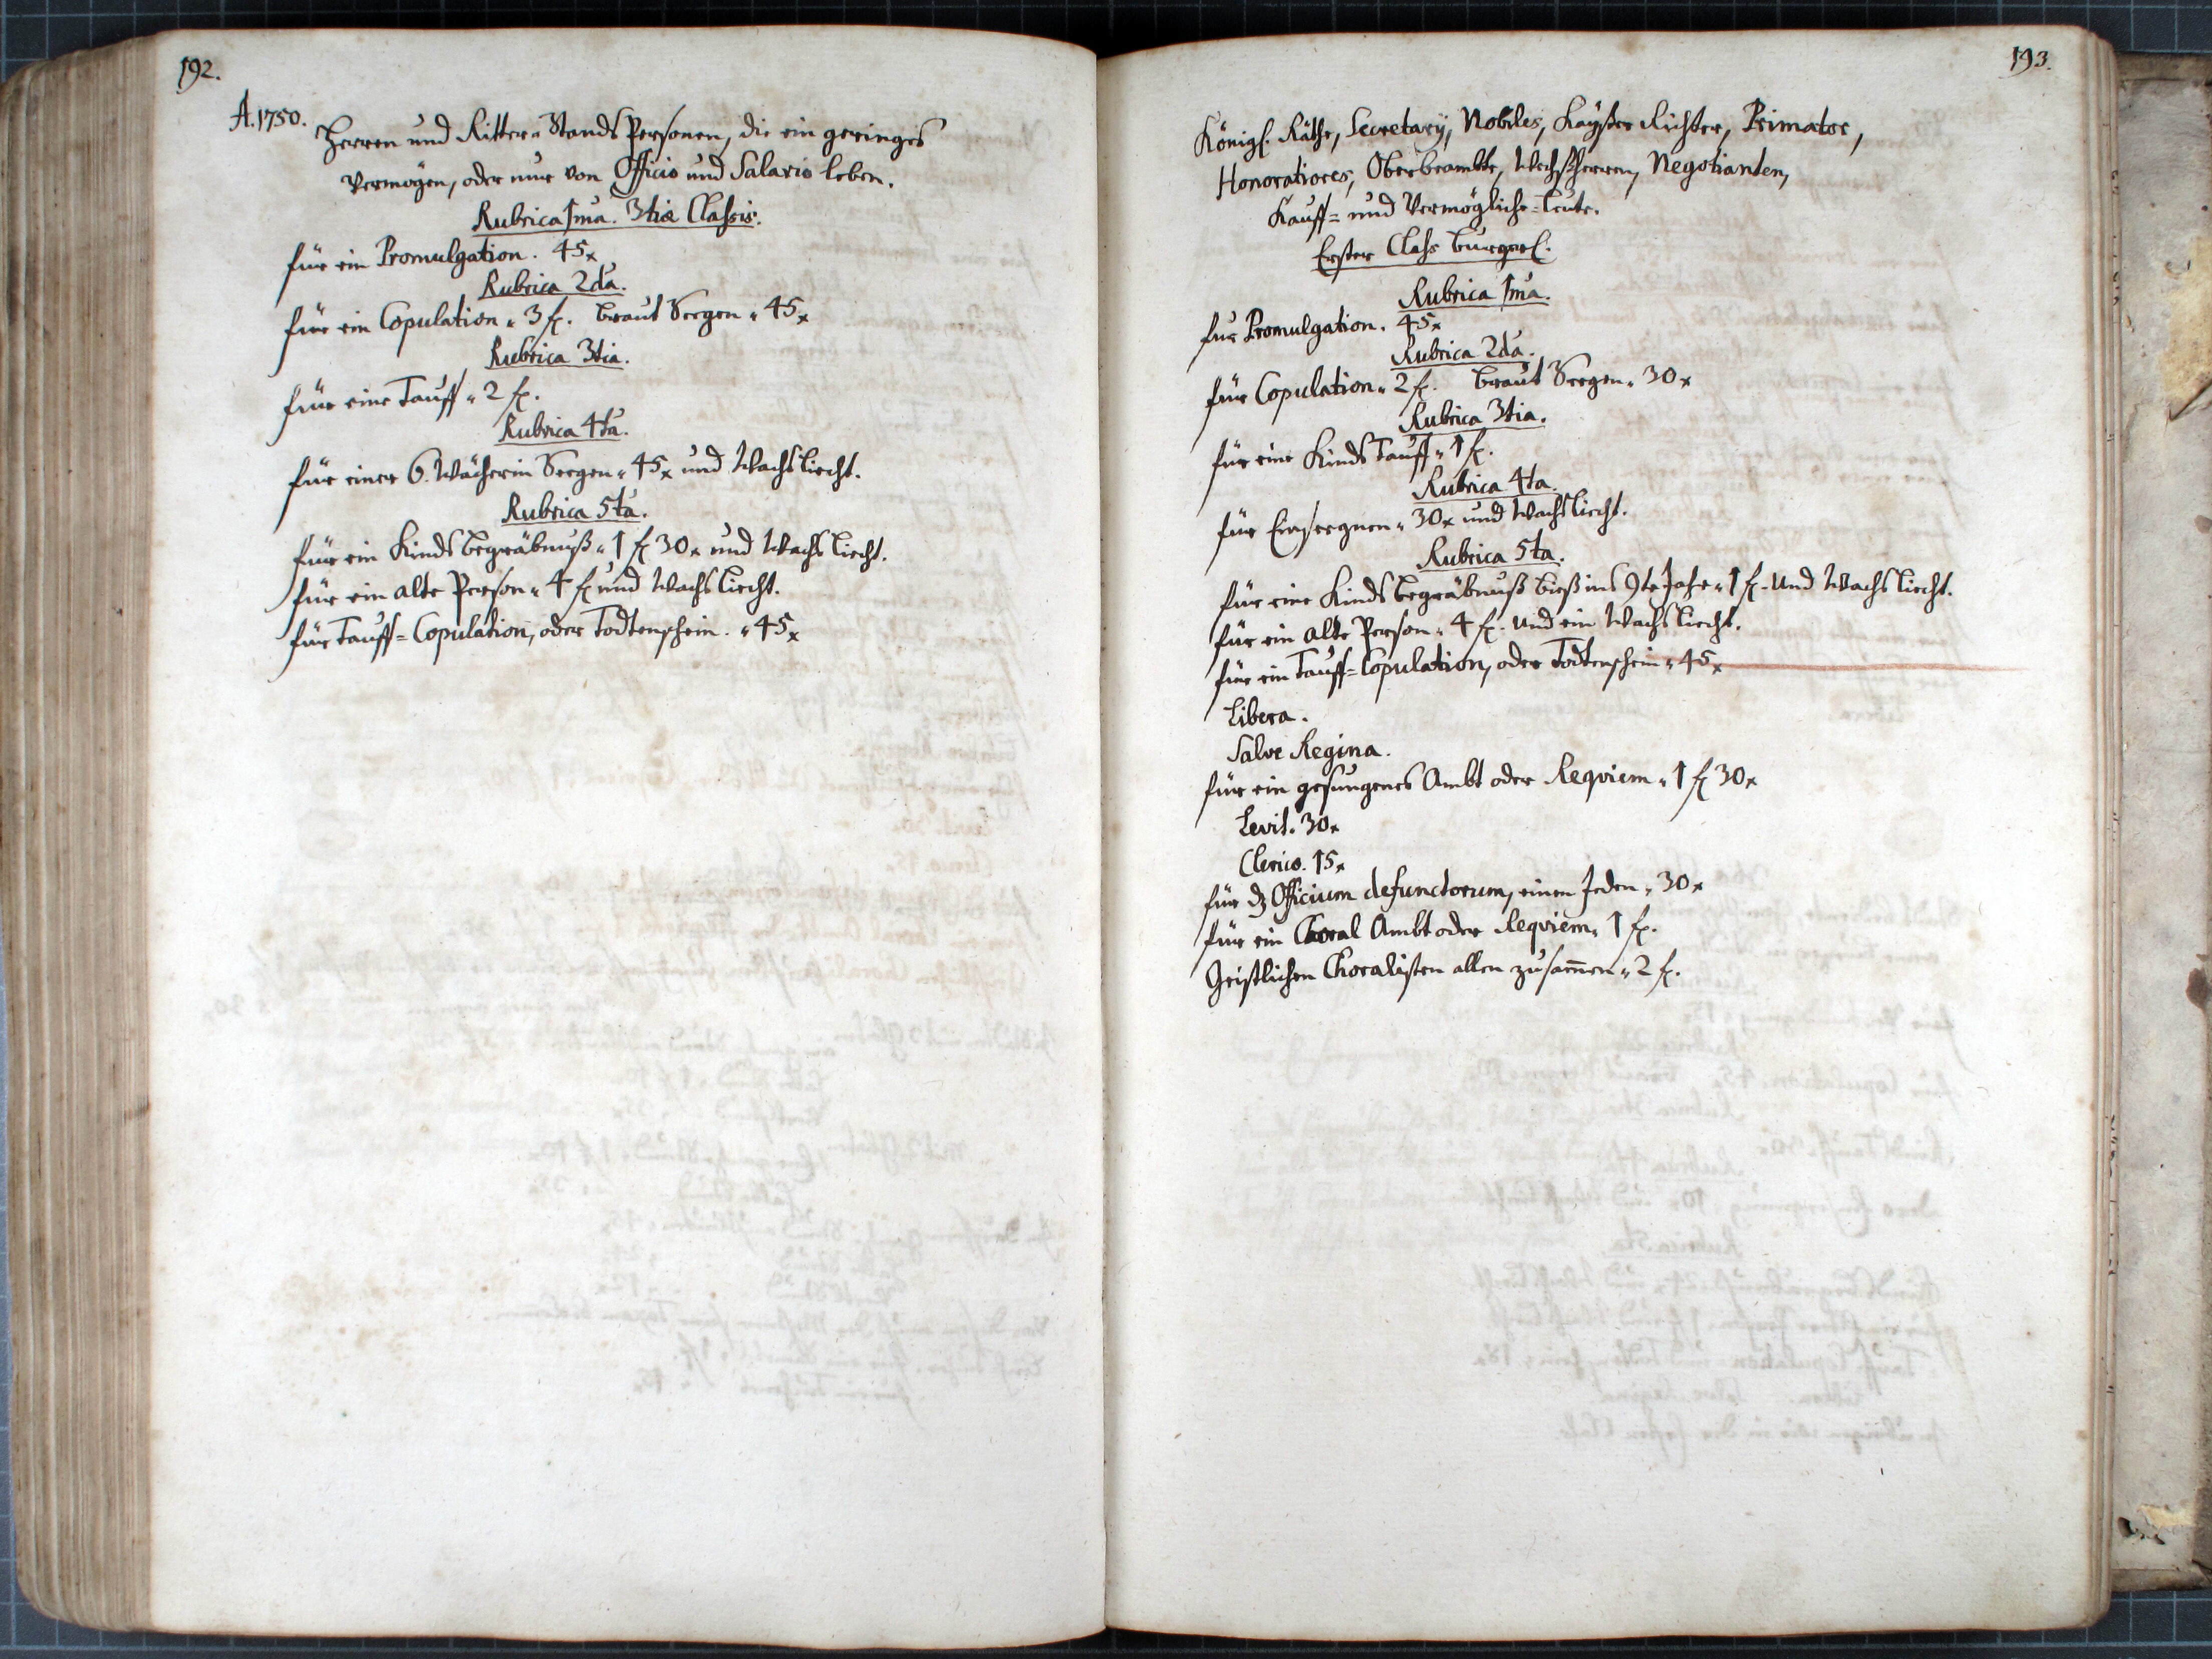 192.
A. 1750. Herren und Ritter= Stands Personen, die ein geringes
Vermögen, oder nur von Officio und Salario leben.
Rubrica 1ma. 3tiæ Classis.
für ein Promulgation. 45x
Rubrica 2da.
für ein Copulation " 3 f. braut Seegen " 45x
Rubrica 3tia.
für eine Tauff " 2 f.
Rubrica 4ta.
für einer 6. Wächerin Seegen " 45x und Wachsliecht.
Rubrica 5ta.
für ein Kinds begräbnuß " 1 f 30x und Wachs liecht.
für ein alte Person " 4 f und Wachs liecht.
für Tauff= Copulation, oder Todtenschein. " 45x
193.
Königl. Räthe, Secretary, Nobiles, Kayser Richter, Primatoe,
Honoratiores, Oberbeambte, Wechßherren, Negotianten,
Kauff= und Vermögliche=leute.
Erster Class burgerl.
Rubrica 1ma.
für Promulgation. 45x
Rubrica 2da.
für Copulation " 2 f. braut Seegen " 30x
Rubrica 3tia.
für eine Kinds Tauff " 1 f.
Rubrica 4ta.
für Einseegnen " 30x und Wachs liecht.
Rubrica 5ta.
für eine Kinds begräbnuß bieß ins 9te Jahr " 1 f. und Wachs liecht.
für ein alte Person " 4 f. und ein Wachs liecht.
für ein Tauff= Copulation, oder Todtenschein " 45x
Libera.
Salve Regina.
für ein gesungenes Ambt oder Reqviem " 1 f 30x
Levit. 30x
Clerico. 15x
für dz Officium defunctorum, einen Jeden " 30x
für ein Choral Ambt oder Reqviem " 1 f.
Geistlichen Choralisten allen zusam̄en " 2 f.